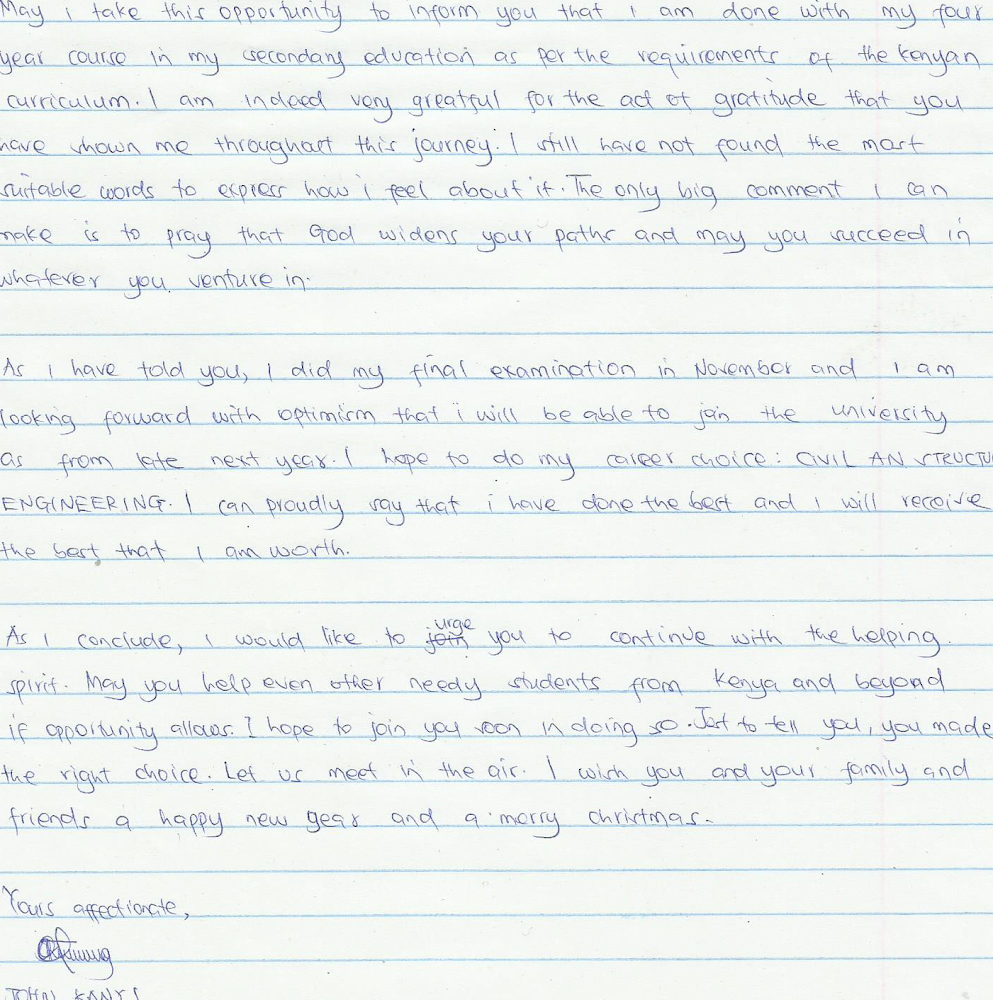 May i take this opportunity to inform you that i am done with my four
year course in my secondary education as per the requirements of the kenyan
curriculum. I am indeed very greatful for the act of gratitude that you
have shown me throughout this journey. I still have not found the most
suitable words to express how i feel about it. The only big comment i can
make is to pray that God widens your paths and may you succeed in
whatever you venture in.
As I have told you, I did my final examination in November and I am
looking forward with optimism that i will be able to join the university
as from late next year. I hope to do my career choice: CIVIL AN STRUCTU
ENGINEERING. I can proudly say that i have done the best and i will receive
the best that I am worth.
As I conclude, I would like to urge you to continue with the helping
spirit. May you help even other needy students from Kenya and beyond
if opportunity allows. I hope to join you soon in doing so. Just to tell you, you made
the right choice. Let us meet in the air. I wish you and your family and
friends a happy new year and a merry christmas.
Yours affectionate,
JOHN